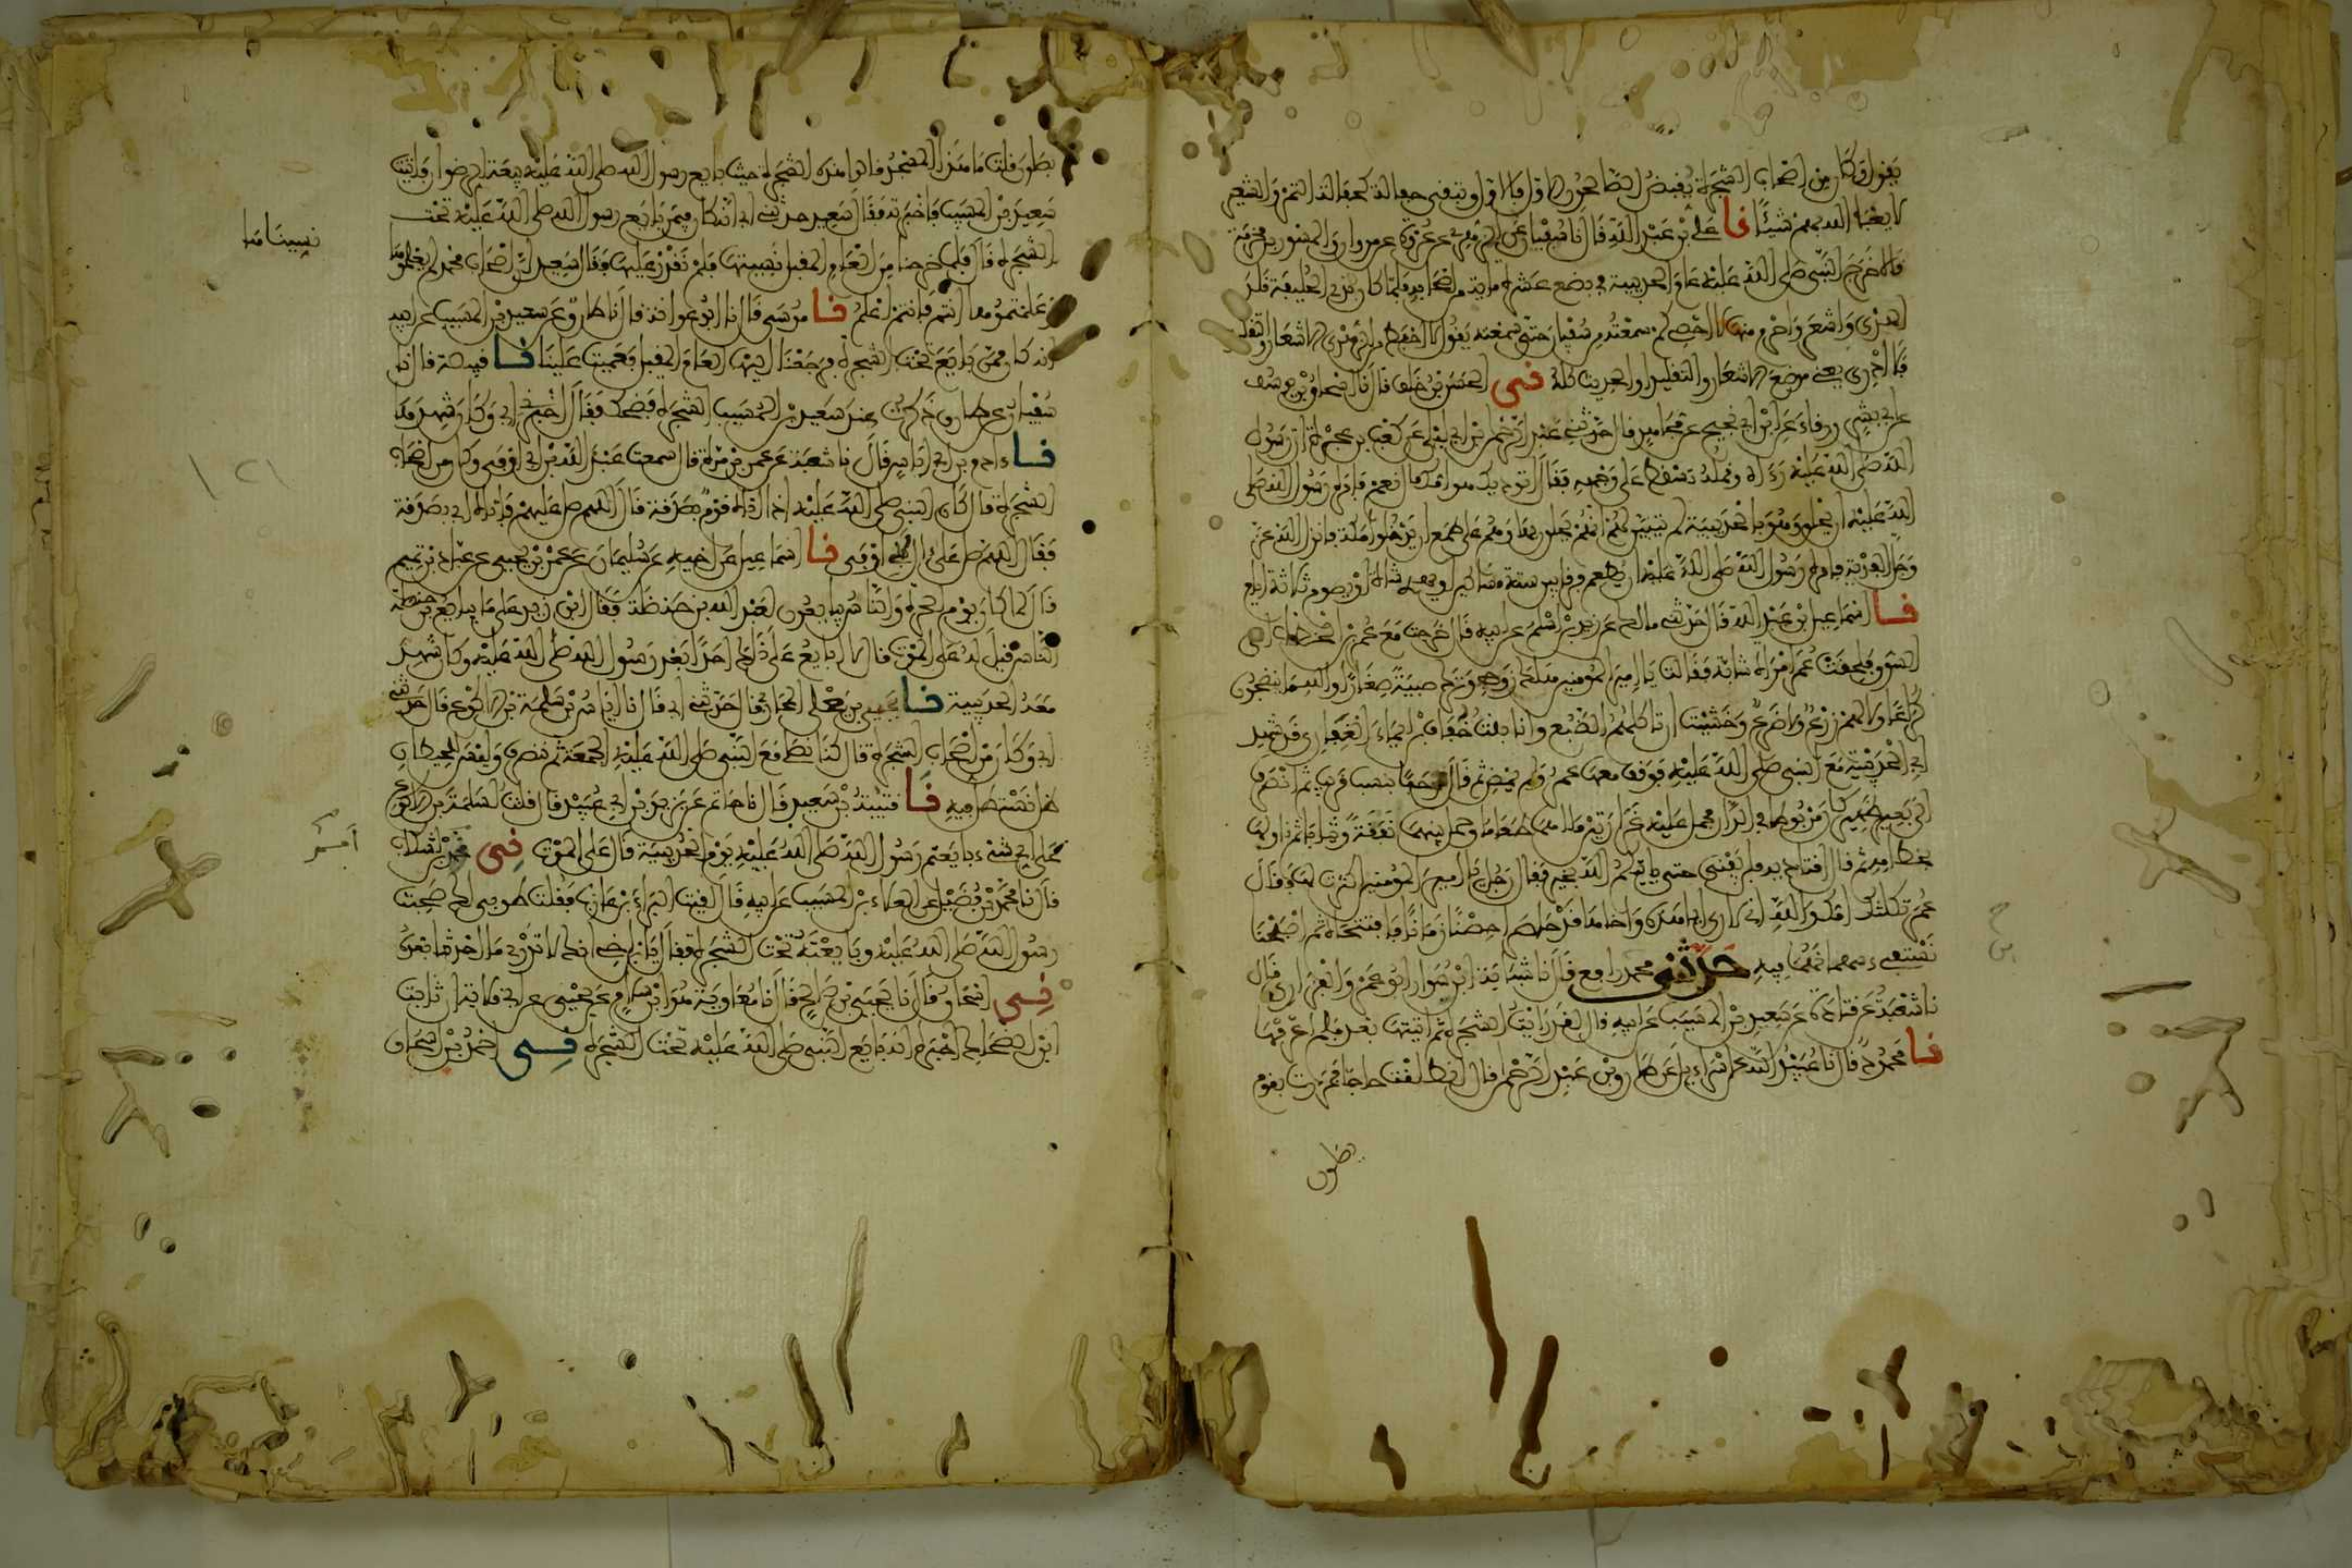 يقول وكان من أصحاب الشجرة يقبض الصالحون الأول فالأول وتبقى حفالة كحفالة التمر والشعير
لا يعبأ الله بهم شيئا نا علي بن عبد الله قال نا سفيان عن الزهري عن عروة عن مروان والمسور بن مخرمة
قالا خرج النبي صلى الله عليه عام الحديبية في بضع عشرة مائة من أصحابه فلما كان بذي الحليفة قلد
الهدي وأشعر وأحرم منها لا أحصي كم سمعته من سفيان حتى سمعته يقول لا أحفظ من الزهري الإشعار والتقليد
فلا أدري يعني موضع الإشعار والتقليد أو الحديث كله ني الحسن بن خلف قال نا إسحاق بن يوسف
عن أبي بشر ورقاء عن ابن أبي نجيح عن مجاهد قال حدثني عبد الرحمن بن أبي ليلى عن كعب بن عجرة أن رسول
الله صلى الله عليه رءاه وقمله تسقط على وجهه فقال أتوذيك هوامك قال نعم فأمره رسول الله صلى
الله عليه أن يحلق وهو بالحديبية لم يتبين لهم أنهم يحلون بها وهم على طمع أن يدخلوا مكة فأنزل الله عز
وجل الفدية فأمره رسول الله صلى الله عليه أن يطعم فرقا بين ستة مساكين أو يهدي شاة أو يصوم ثلاثة أيام
نا إسماعيل بن عبد الله قال حدثني مالك عن زيد بن أسلم عن أبيه قال خرجت مع عمر بن الخطاب إلى
السوق فلحقت عمر امرأة شابة فقالت يا أمير المومنين هلك زوجي وترك صبية صغارا والله ما ينضجون
كراعا ولا لهم زرع ولا ضرع وخشيت أن تأكلهم الضبع وأنا بنت خفاف بن إيماء الغفاري وقد شهد
أبي الحديبية مع النبي صلى الله عليه فوقف معها عمر ولم يمض ثم قال مرحبا بنسب قريب ثم انصرف
إلى بعير ظهير كان مربوطا في الدار فحمل عليه غرارتين ملأهما طعاما وحمل بينهما نفقة وثيابا ثم ناولها
بخطامه ثم قال اقتاديه فلن يفنى حتى يأتيكم الله بخير فقال رجل يا أمير المومنين أكثرت لها فقال
عمر ثكلتك أمك والله إني لأرى أبا هذه وأخاها قد حاصرا حصنا زمانا فافتتحاه ثم أصبحنا
نستفيء سهمانهما فيه حدثني محمد بن رافع قال نا شبابة بن سوار أبو عمرو الفزاري قال
نا شعبة عن قتادة عن سعيد بن المسيب عن أبيه قال لقد رأيت الشجرة ثم أتيتها بعد فلم أعرفها
نا محمود قال نا عبيد الله عن إسراءيل عن طارق بن عبد الرحمن قال انطلقت حاجا فمررت بقوم
يصلون
يصلون قلت ما هذا المسجد قالوا هذه الشجرة حيث بايع رسول الله صلى الله عليه بيعة الرضوان فأتيت
سعيد بن المسيب فأخبرته فقال سعيد حدثني أبي أنه كان فيمن بايع رسول الله صلى الله عليه تحت
الشجرة قال فلما خرجنا من العام المقبل نسيتها فلم نقدر عليها فقال سعيد إن أصحاب محمد لم يعلموها
وعلمتموها أنتم فأنتم أعلم نا موسى قال نا أبو عوانة قال نا طارق عن سعيد بن المسيب عن أبيه
أنه كان ممن بايع تحت الشجرة فرجعنا إليها العام المقبل فعميت علينا نا قبيصة قال نا
سفيان عن طارق ذكرت عند سعيد بن المسيب الشجرة فضحك فقال أخبرني أبي وكان شهدها
نا ءادم بن أبي إياس قال نا شعبة عن عمرو بن مرة قال سمعت عبد الله بن أبي أوفى وكان من أصحاب
الشجرة قال كان النبي صلى الله عليه إذا أتاه قوم بصدقة قال اللهم صل عليهم فأتاه أبي بصدقة
فقال اللهم صل على ءال أبي أوفى نا إسماعيل عن أخيه عن سليمان عن عمرو بن يحيى عن عباد بن تميم
قال لما كان يوم الحرة والناس يبايعون لعبد الله بن حنظلة فقال ابن زيد على ما يبايع ابن حنظلة
الناس قيل له على الموت قال لا أبايع على ذلك أحدا بعد رسول الله صلى الله عليه وكان شهد
معه الحديبية نا يحيى بن يعلى المحاربي قال حدثني أبي قال نا إياس بن سلمة بن الأكوع قال حدثني
أبي وكان من أصحاب الشجرة قال كنا نصلي مع النبي صلى الله عليه الجمعة ثم ننصرف وليس للحيطان
ظل نستظل فيه نا قتيبة بن سعيد قال نا حاتم عن يزيد بن أبي عبيد قال قلت لسلمة بن الأكوع
على أي شيء بايعتم رسول الله صلى الله عليه يوم الحديبية قال على الموت ني أحمد بن إشكاب
قال نا محمد بن فضيل عن العلاء بن المسيب عن أبيه قال لقيت البراء بن عازب فقلت طوبى لك صحبت
رسول الله صلى الله عليه وبايعته تحت الشجرة فقال يا ابن أخي إنك لا تدري ما أحدثنا بعده
ني إسحاق قال نا يحيى بن صالح قال نا معاوية هو ابن سلام عن يحيى عن أبي قلابة أن ثابت
ابن الضحاك أخبره أنه بايع النبي صلى الله عليه تحت الشجرة ني أحمد بن إسحاق
نسيناها